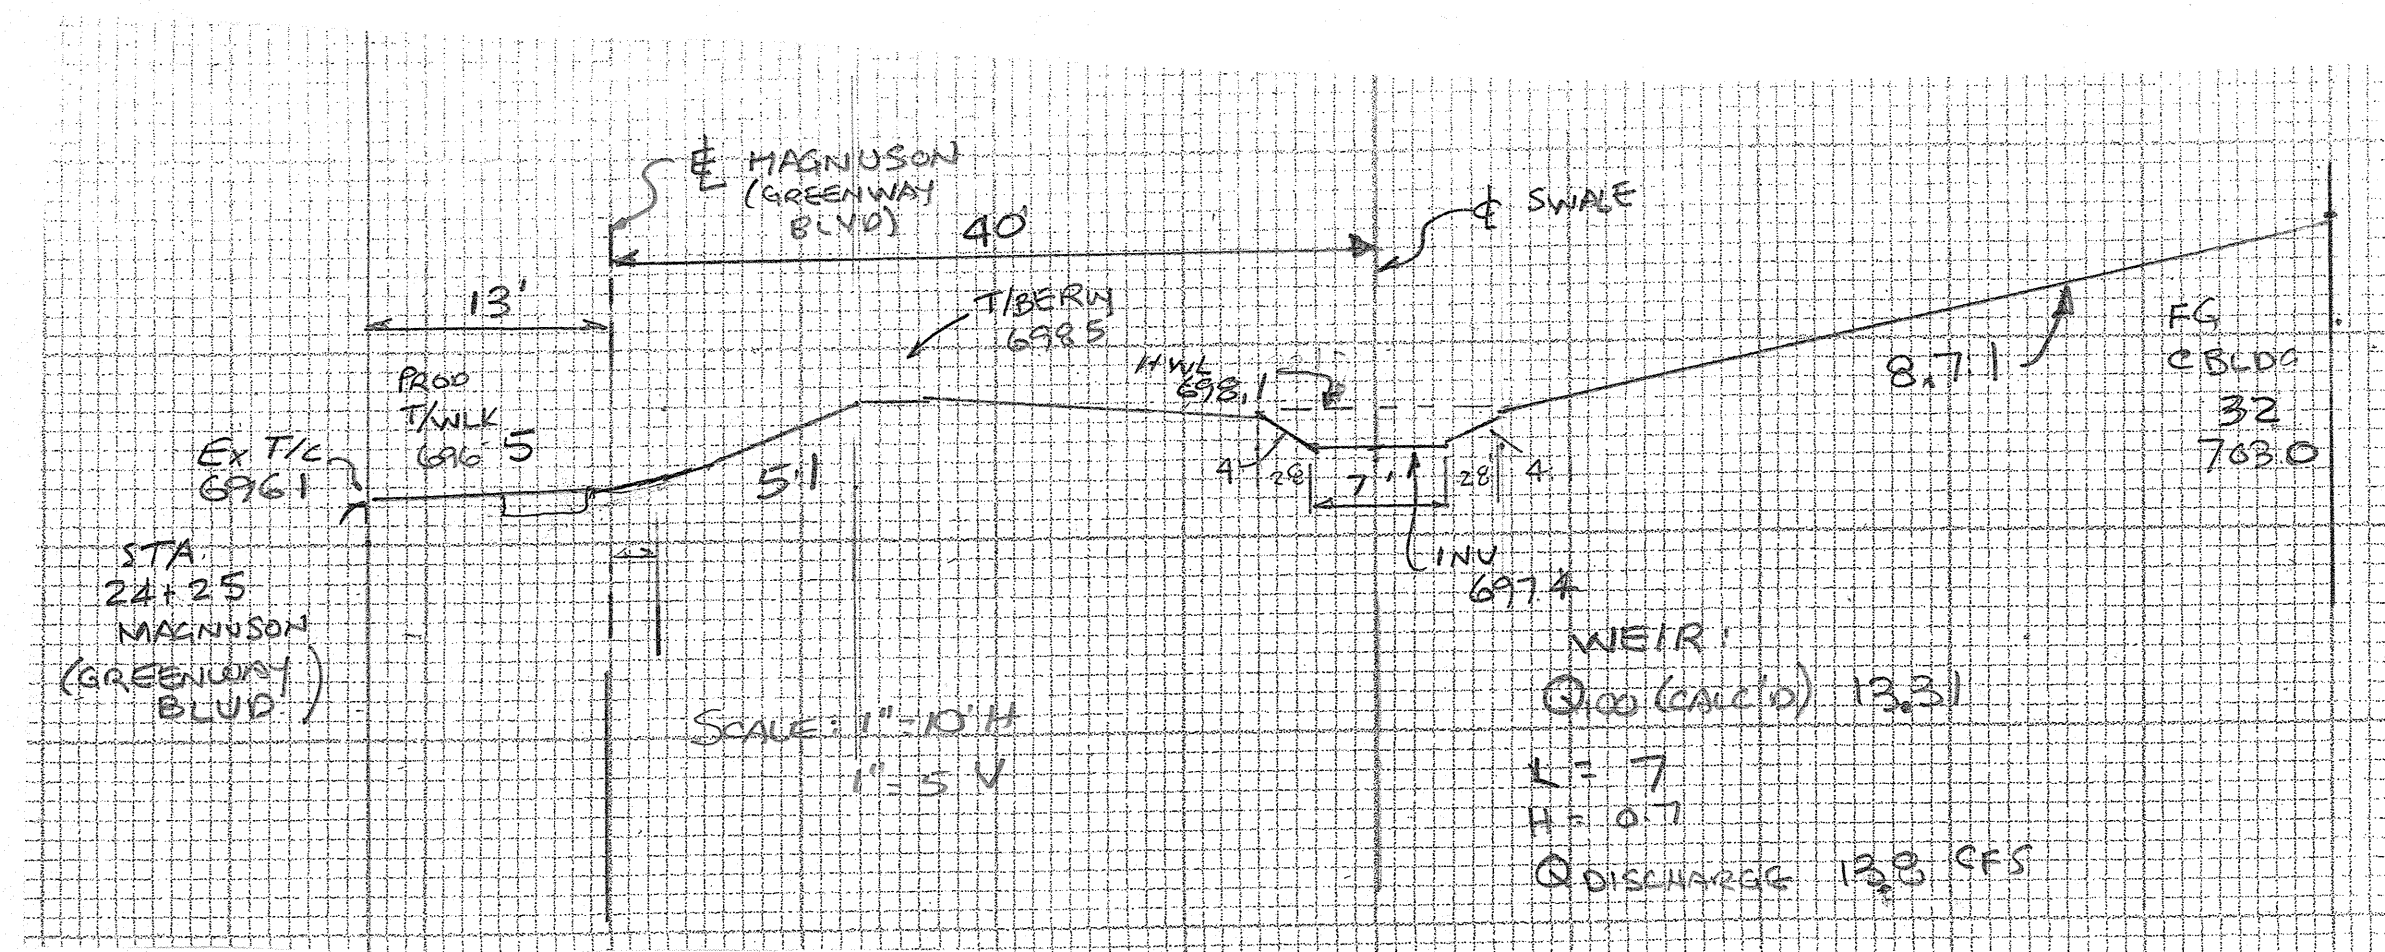 ℄ MAGNUSON
(GREENWAY
BLVD)
40'
℄ SWALE
13'
T/BERM
698.5
HWL
698.1
PROP
T/WLK
696.5
EX T/C
696.1
5:1
4
2.8'
7'
2.8'
4
INV
697.4
8.7:1
FG
BLDG
32
703.0
STA.
24+25
MAGNUSON
(GREENWAY
BLVD)
SCALE: 1"=10' H
1"=5 V
WEIR:
Q100 (CALC'D) 13.31
L = 7
H = 0.7
Q DISCHARGE 13.8 CFS